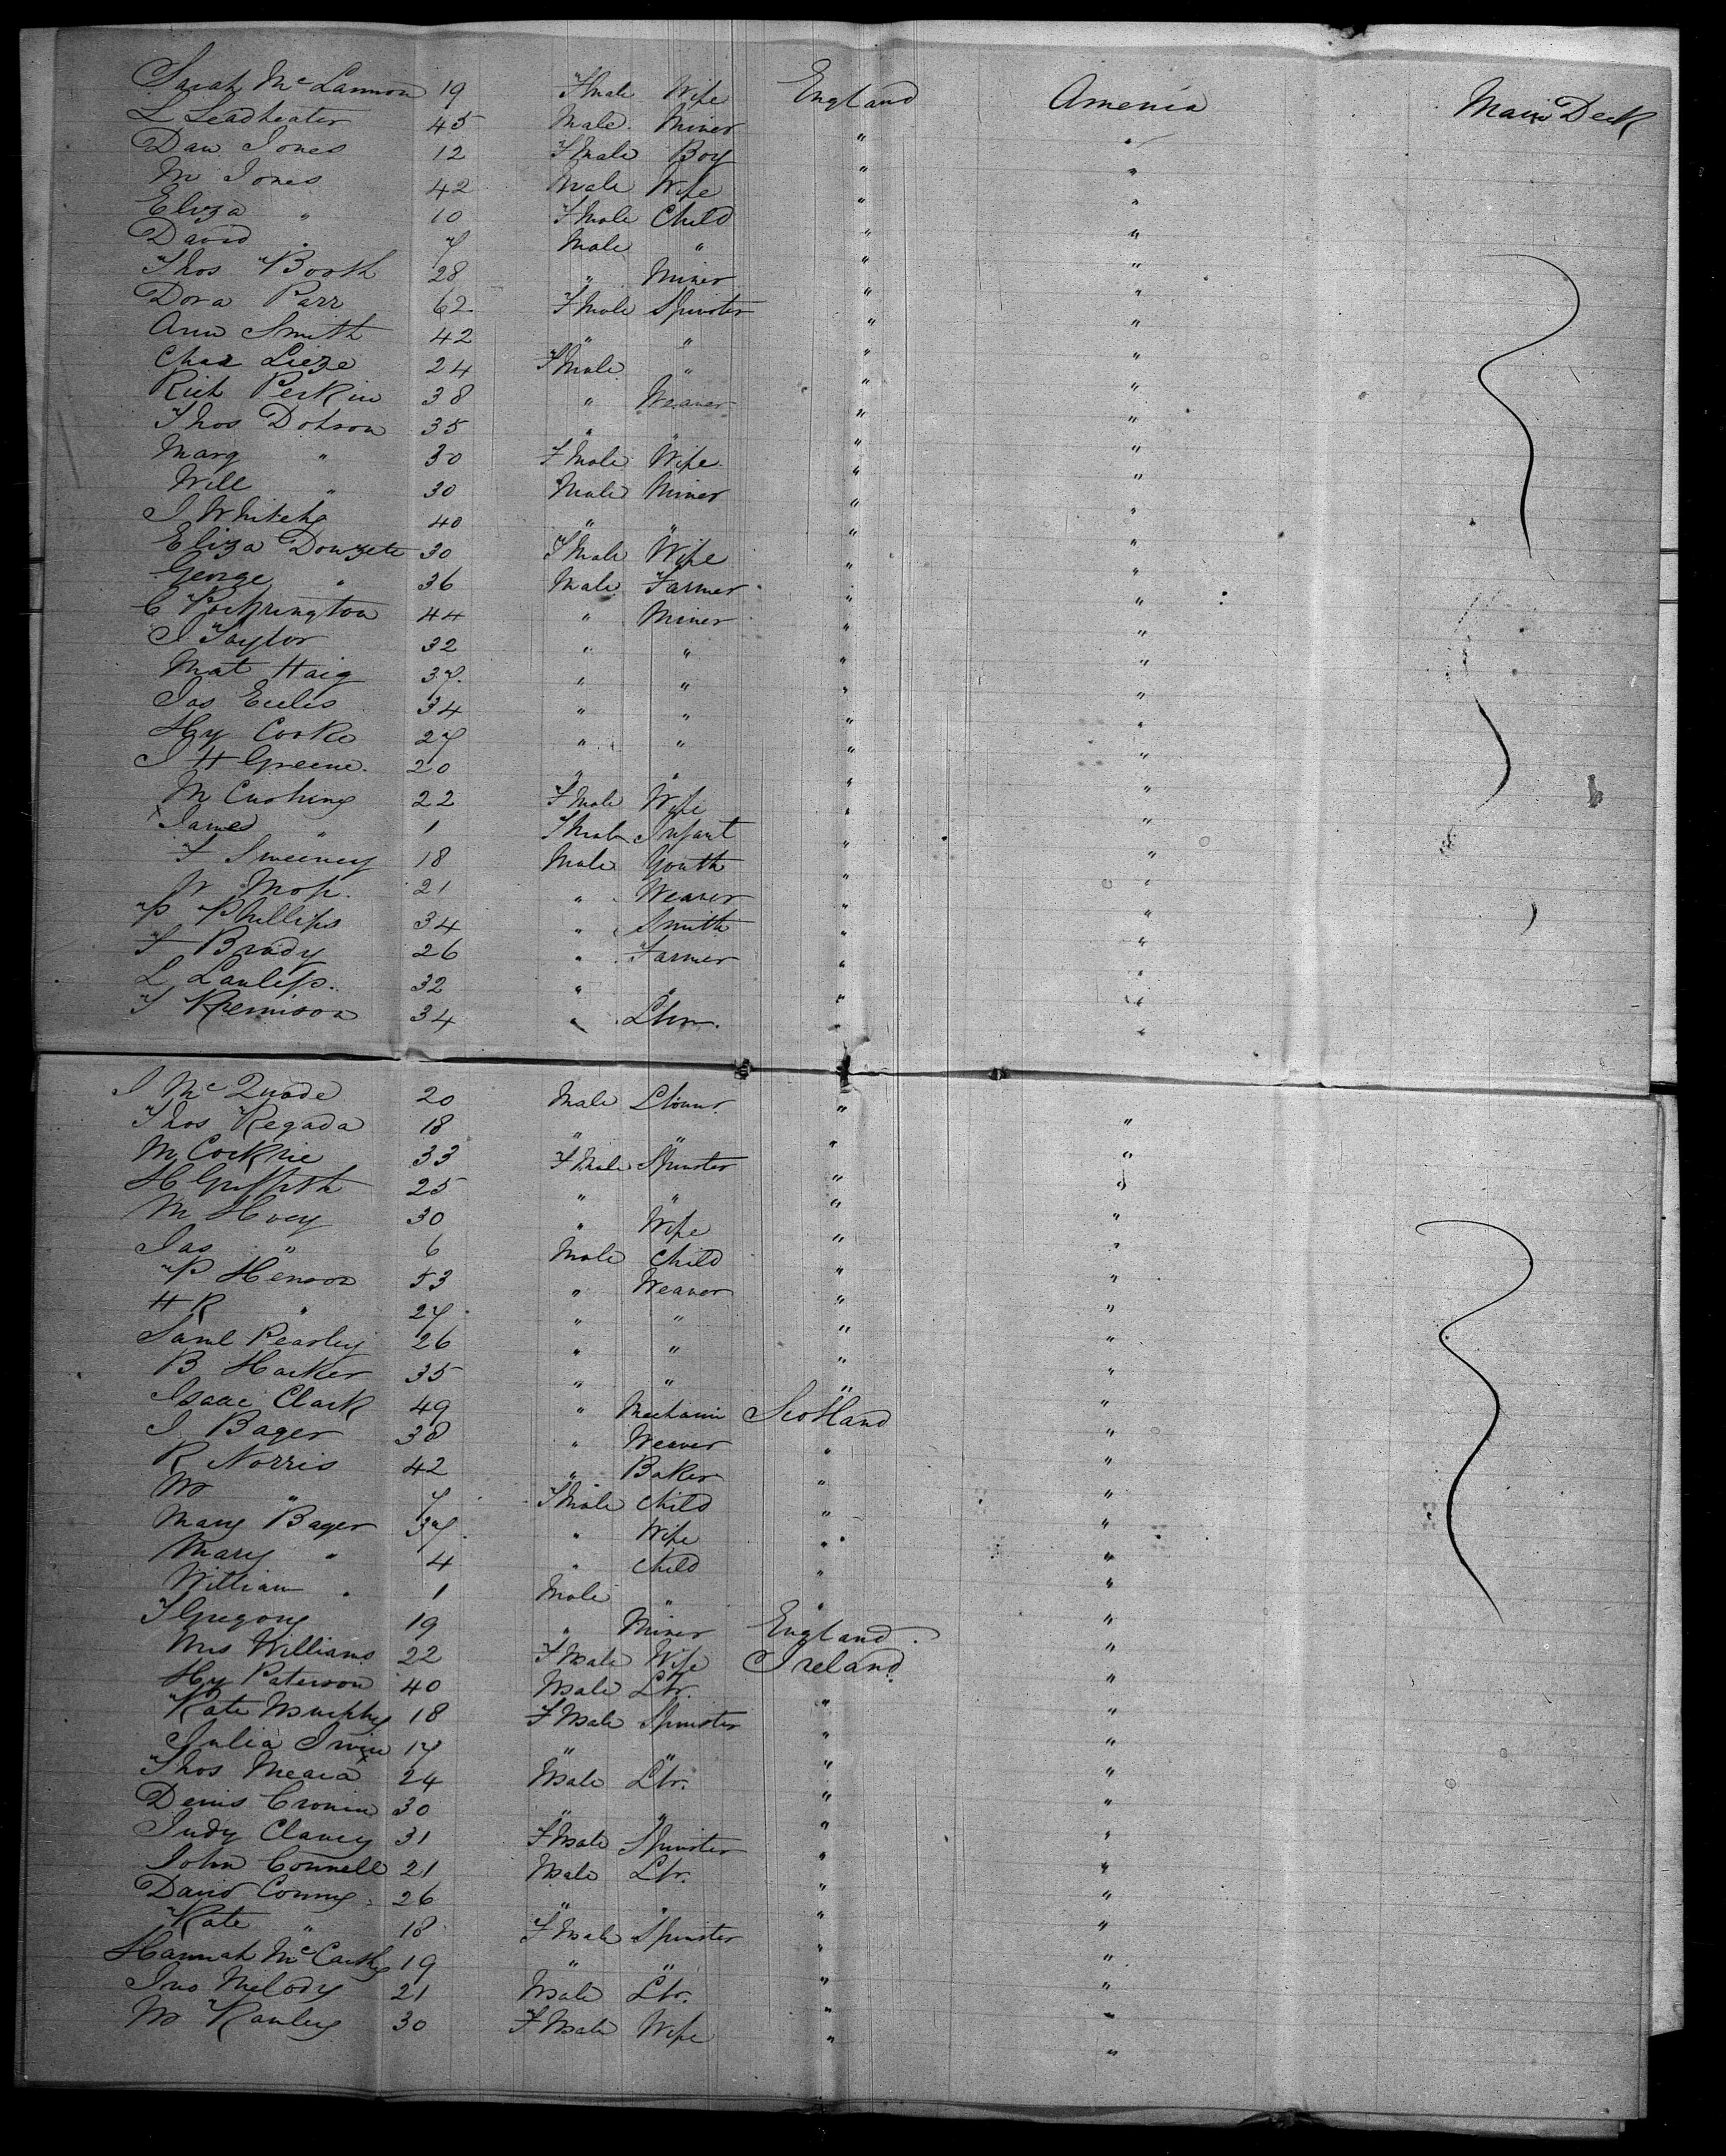 Sarah McLannon 19 Fmale Wife England Amenia Main Deck
L Leadheater 45 Male Miner " "
Dan Jones 12 Fmale Boy " "
M Jones 42 Male Wife " "
Eliza " 10 Fmale Child " "
David " 7 Male " " "
Thos Booth 28 " Miner " "
Dora Parr 62 Fmale Spinster " "
Ann Smith 42 " " " "
Chas Lieze 24 Fmale " " "
Rich Perkin 38 " Weaver " "
Thos Dobson 35 " " " "
Marg " 30 Fmale Wife " "
Will " 30 Male Miner " "
J 40 " " " "
Eliza 30 Fmale Wife " "
George " 36 Male Farmer " "
C 44 " Miner " "
J Taylor 32 " " " "
Mat Haig 37 " " " "
Jas Eccles 34 " " " "
Hy Cooke 27 " " " "
J H Greene 20 " " " "
M Cushing 22 Fmale Wife " "
James " 1 Fmale Infant " "
F Sweeney 18 Male Youth " "
W 21 " Weaver " "
P Phillips 34 " Smith " "
F Brady 26 " Farmer " "
L 32 " " " "
T 34 " Lbrr. " "
J McQuade 20 Male " "
Thos Regada 18 " " " "
M 33 Fmale Spinster " "
H Griffith 25 " " " "
M Hoey 30 " Wife " "
Jas " 6 Male Child " "
P Henson 53 " Weaver " "
H R " 27 " " " "
Saml Pearley 26 " " " "
B Hacker 35 " " " "
Isaac Clark 49 " Mechanic Scotland "
J Bager 38 " Weaver " "
R Norris 42 " Baker " "
M " 7 Fmale Child " "
Mary Bager 37 " Wife " "
Mary " 4 " Child " "
William " 1 Male " " "
T Gregory 19 " Miner England "
Mrs Williams 22 Fmale Wife Ireland "
Hy Paterson 40 Male Lbr. " "
Kate Murphy 18 Fmale Spinster " "
Julia Irwin 17 " " " "
Thos Meara 24 Male Lbr. " "
Denis Cronin 30 " " " "
Judy Clancy 31 Fmale Spinster " "
John Connell 21 Male Lbr. " "
David 26 " " " "
Kate " 18 Fmale Spinster " "
Hannah McCarthy 19 " " " "
Jno Melody 21 Male Lbr. " "
M 30 Fmale Wife " "